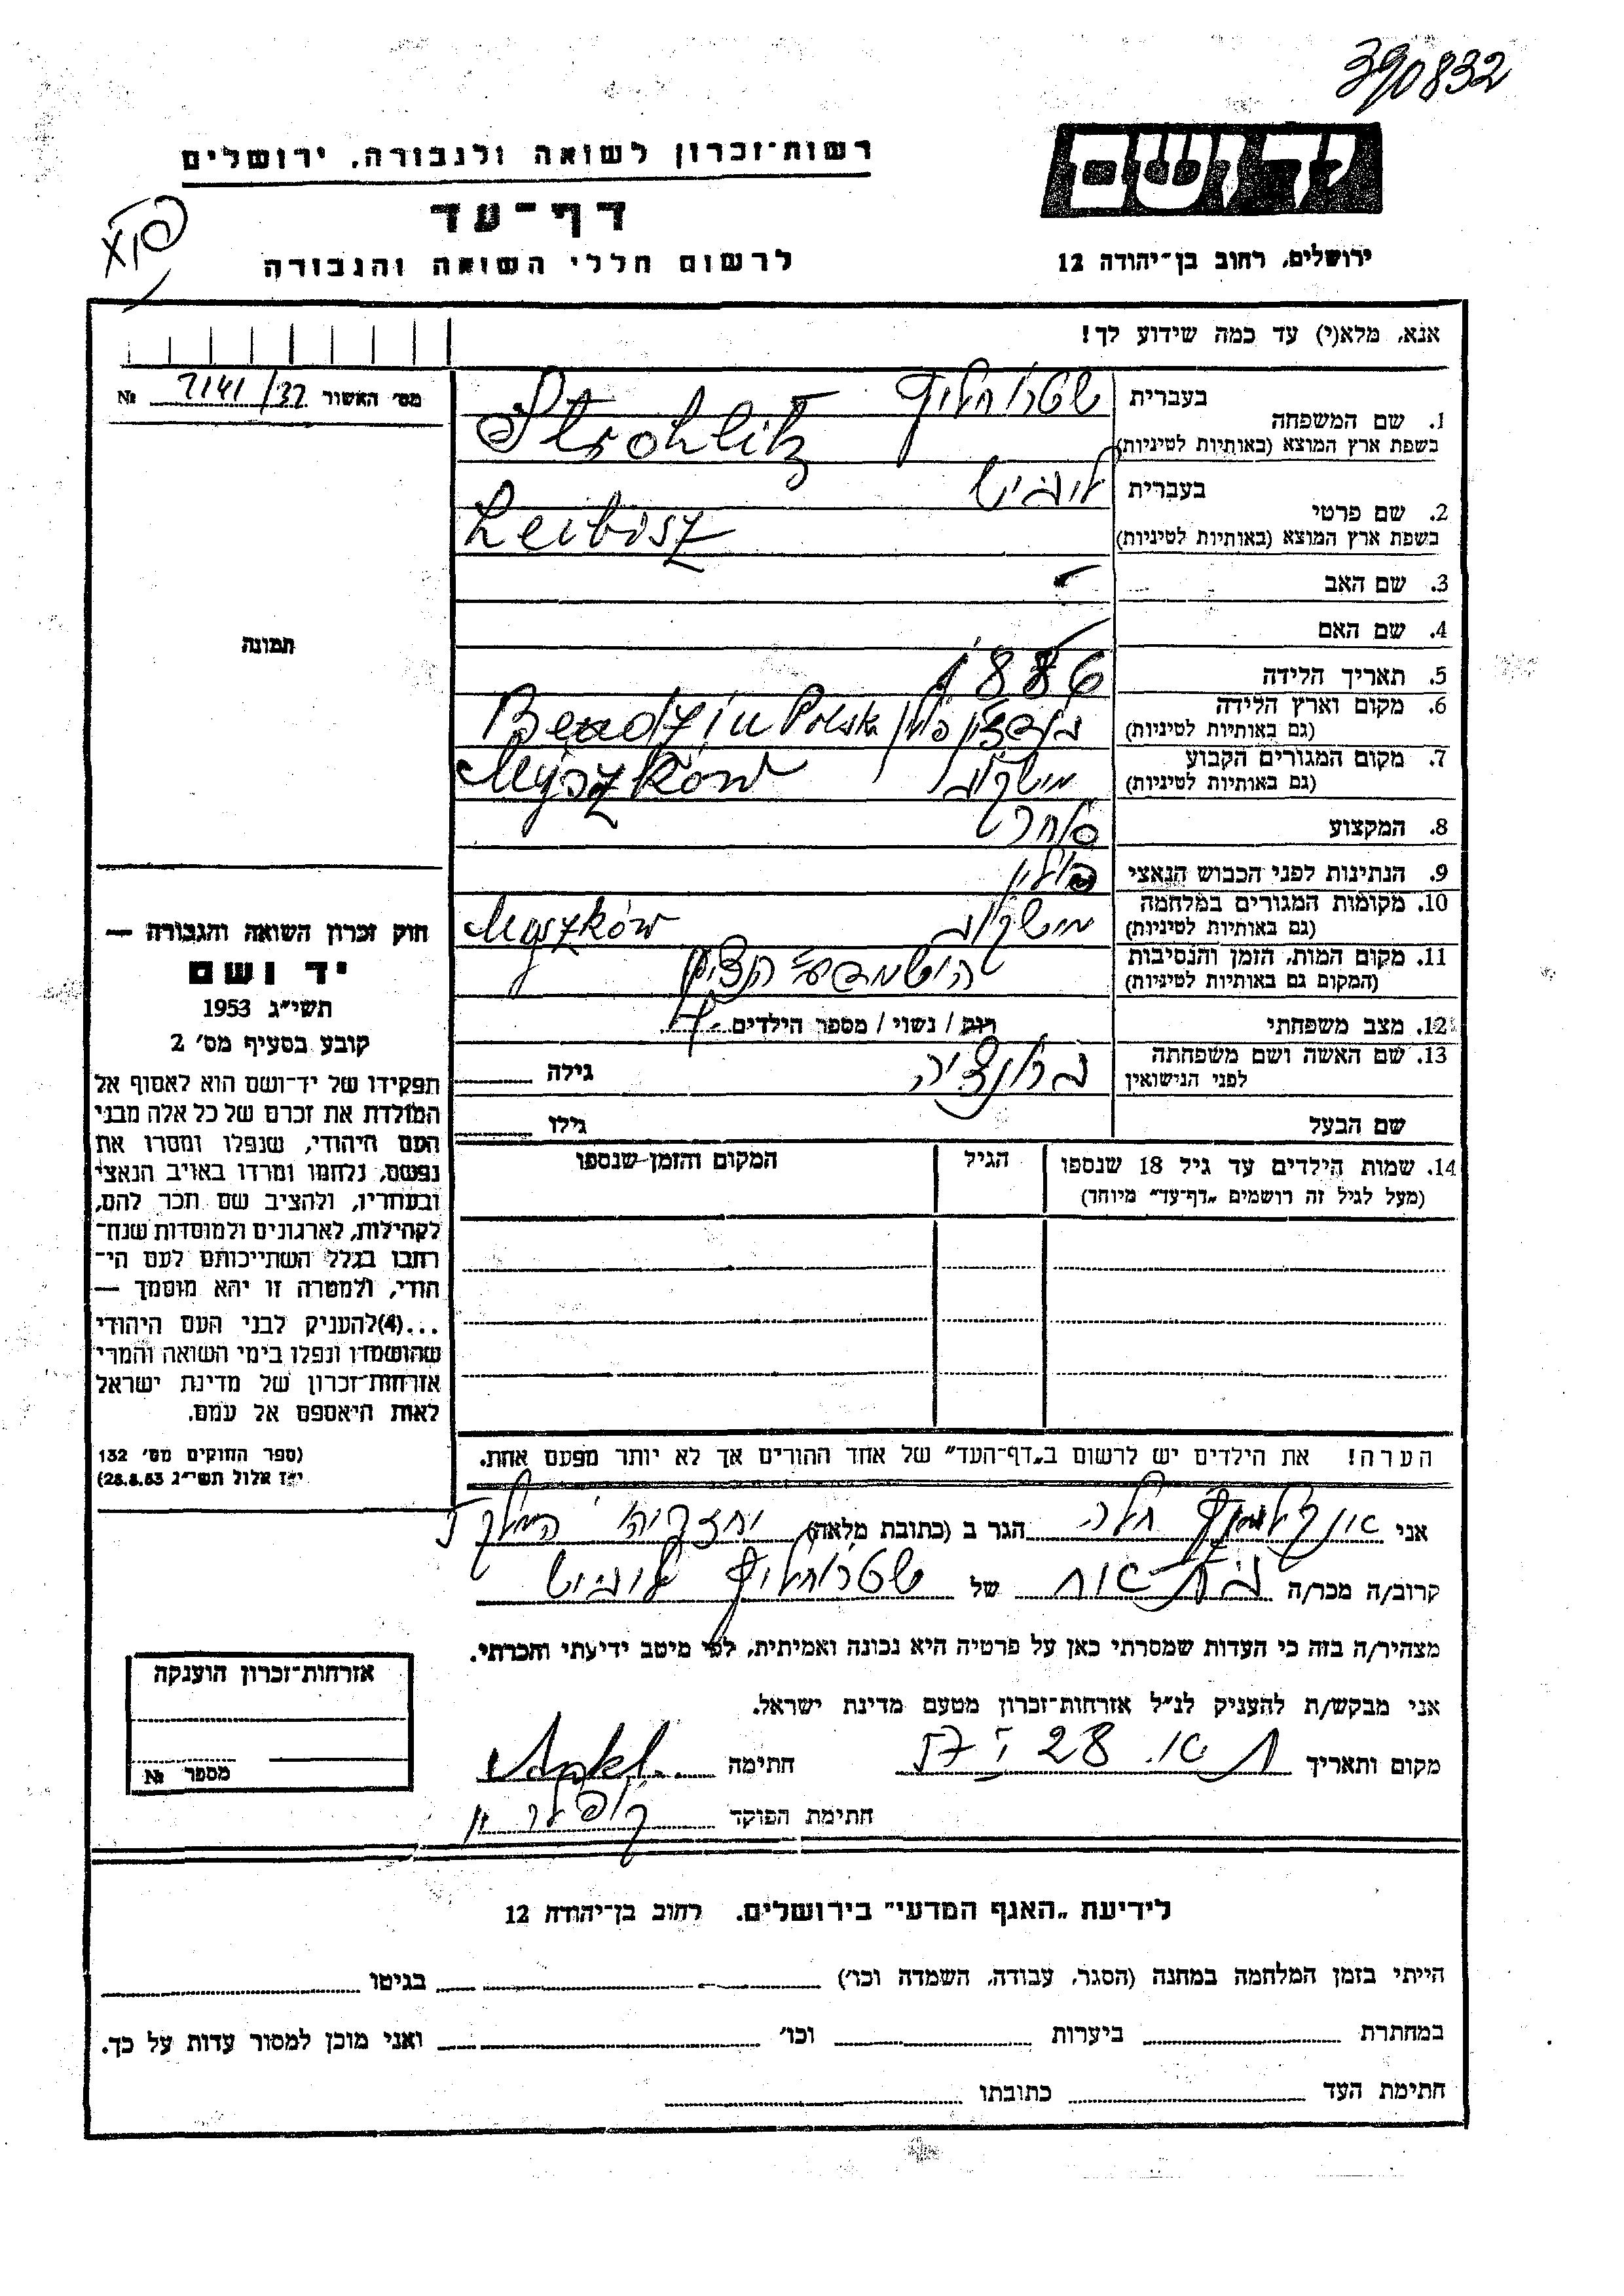 390832
יד ושם
רשות־זכרון לשואה ולגבורה, ירושלים
דף־עד
לרשום חללי השואה והגבורה
ירושלים, רחוב בן־יהודה 12
אנא, מלא(י) עד כמה שידוע לך!
מס׳ האשור 7141/32 №
1. שם המשפחה
בעברית שטרוחליץ
בשפת ארץ המוצא (באותיות לטיניות) Strohlitz
2. שם פרטי
בעברית לייביש
בשפת ארץ המוצא (באותיות לטיניות) Leibisz
3. שם האב
4. שם האם
תמונה
5. תאריך הלידה 1886
6. מקום וארץ הלידה
(גם באותיות לטיניות) בנדצין פולין Bendzin Polska
7. מקום המגורים הקבוע
(גם באותיות לטיניות) מישקוב Myszków
8. המקצוע סוחר
9. הנתינות לפני הכבוש הנאצי פולין
10. מקומות המגורים במלחמה
(גם באותיות לטיניות) מישקוב Myszków
11. מקום המות, הזמן והנסיבות
(המקום גם באותיות לטיניות)
12. מצב משפחתי רווק / נשוי / מספר הילדים 4
13. שם האשה ושם משפחתה
לפני הנישואין גילה
שם הבעל גילו
14. שמות הילדים עד גיל 18 שנספו
(מעל לגיל זה רושמים „דף־עד״ מיוחד)
הגיל
המקום והזמן שנספו
חוק זכרון השואה והגבורה —
יד ושם
תשי״ג 1953
קובע בסעיף מס׳ 2
תפקידו של יד־ושם הוא לאסוף אל
המולדת את זכרם של כל אלה מבני
העם היהודי, שנפלו ומסרו את
נפשם, נלחמו ומרדו באויב הנאצי
ובעוזריו, ולהציב שם וזכר להם,
לקהילות, לארגונים ולמוסדות שנח־
רבו בגלל השתייכותם לעם הי־
הודי, ולמטרה זו יהא מוסמך —
...(4)להעניק לבני העם היהודי
שהושמדו ונפלו בימי השואה והמרי
אזרחות־זכרון של מדינת ישראל
לאות היאספם אל עמם.
(ספר החוקים מס׳ 132
י״ז אלול תשי״ג 28.8.53)
הערה! את הילדים יש לרשום ב„דף־העד״ של אחד ההורים אך לא יותר מפעם אחת.
אני חוה הגר ב (כתובת מלאה) המלך
קרוב/ה מכר/ה בת־אח של שטרוחליץ לייביש
מצהיר/ה בזה כי העדות שמסרתי כאן על פרטיה היא נכונה ואמיתית, לפי מיטב ידיעתי והכרתי.
אני מבקש/ת להעניק לנ״ל אזרחות־זכרון מטעם מדינת ישראל.
מקום ותאריך ת״א. 28 57 חתימה
חתימת הפוקד
אזרחות־זכרון הוענקה
מספר №
לידיעת „האגף המדעי״ בירושלים. רחוב בן־יהודה 12
הייתי בזמן המלחמה במחנה (הסגר, עבודה, השמדה וכו׳) בגיטו
במחתרת ביערות וכו׳ ואני מוכן למסור עדות על כך.
חתימת העד כתובתו